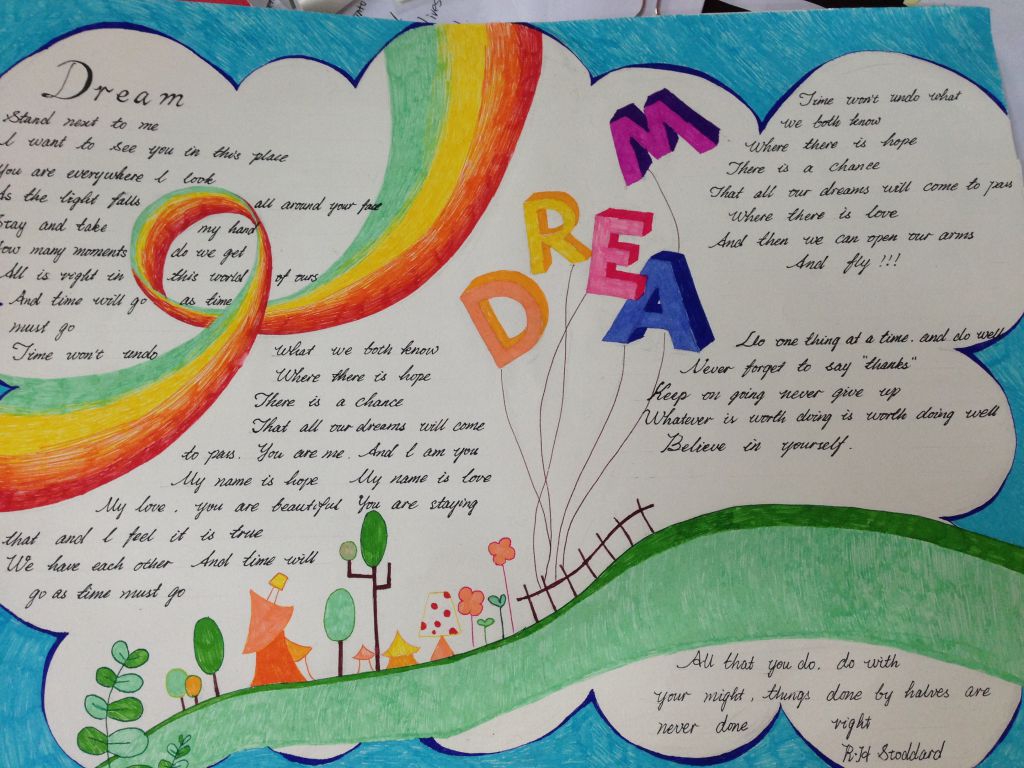 Dream
Stand next to me
I want to see you in this place
You are everywhere I look
As the light falls all around your face
Stay and take my hand
How many moments do we get
All is right in this world of ours
And time will go as time
must go
Time won't undo
What we both know
Where there is hope
There is a chance
That all our dreams will come
to pass. You are me. And I am you
My name is hope My name is love
My love, you are beautiful You are staying
that and I feel it is true
We have each other And time will
go as time must go
DREAM
Time won't undo what
we both know
Where there is hope
There is a chance
That all our dreams will come to pass
Where there is love
And then we can open our arms
And fly!!!
Do one thing at a time. and do well
Never forget to say "thanks"
Keep on going never give up
Whatever is worth doing is worth doing well
Believe in yourself.
All that you do. do with
your might, things done by halves are
never done right
R·H Stoddard